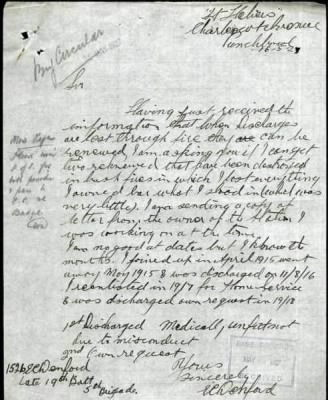 "St Heliers"
Charlecote Avenue
Punchbowl
16-5-2
By Circular
Sir
Having just received the
information that when discharges
are lost through fire they can be
renewed I am asking you if I can get
two rehewed that have been destroyed
in bush fires in which I lost everything
I owned bar what I stood in (which was
very little). I am sending a copy of
letter from the owner of the Station I
was working on at the time.
I am no good at dates but I know the
months. I joined up in April 1915 went
away May 1915 & was discharged on 11/8/16
I reenlisted in 1917 for Home Service
& was discharged own request in 1918
1st Discharged Medically unfit not
due to misconduct
2nd Own request
Yours
Sincerely
EC Denford
1526 EC Denford
Late 19th Batt
5th Brigade